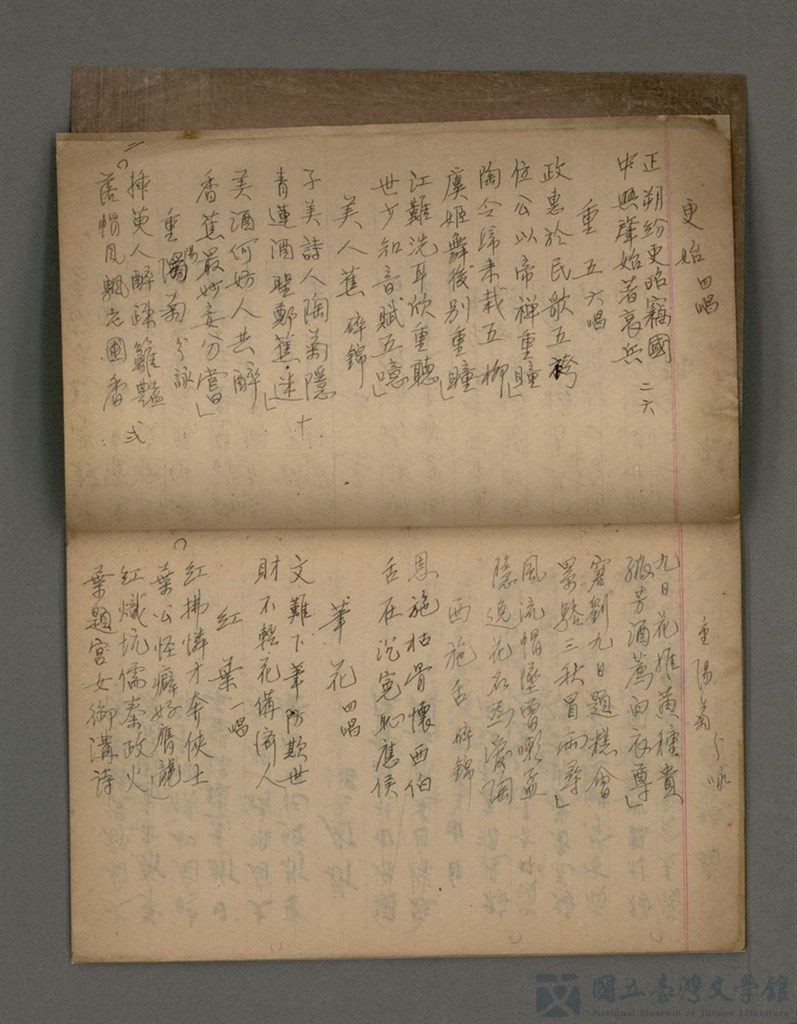 更始 四唱
正朔紛更昭竊國
中興肇始著哀兵 二六
重五 六唱
政惠於民歌五袴
位公以帝禪重瞳」
陶令歸來栽五柳
虞姬舞後別重瞳」
江難洗耳欣重聽
世少知音賦五噫」
美人蕉 碎錦
子美詩人陶菊隱 十
青蓮酒聖鄭蕉迷」
美酒何妨人共醉
香蕉最妙妾分嘗」
重陽菊 分詠
插萸人醉疎籬豔 弍
落帽風飄老圃香
重陽菊 分咏
九日花推黃種貴
酒薦白衣尊」
客劉九日題糕會
三秋冒雨尋」
風流帽墜曾嘲孟
隱逸花
西施舌 碎錦
恩施枯骨懷西伯
舌在沉冤恥應侯
筆花 四唱
文難下筆防欺世
財不輕花備濟人
紅葉 一唱
紅拂憐才奔俠士
葉公怪癖好膺龍」
紅熾坑儒秦政火
葉題宮女御溝詩
國立臺灣文學館
National Museum of Taiwan Literature